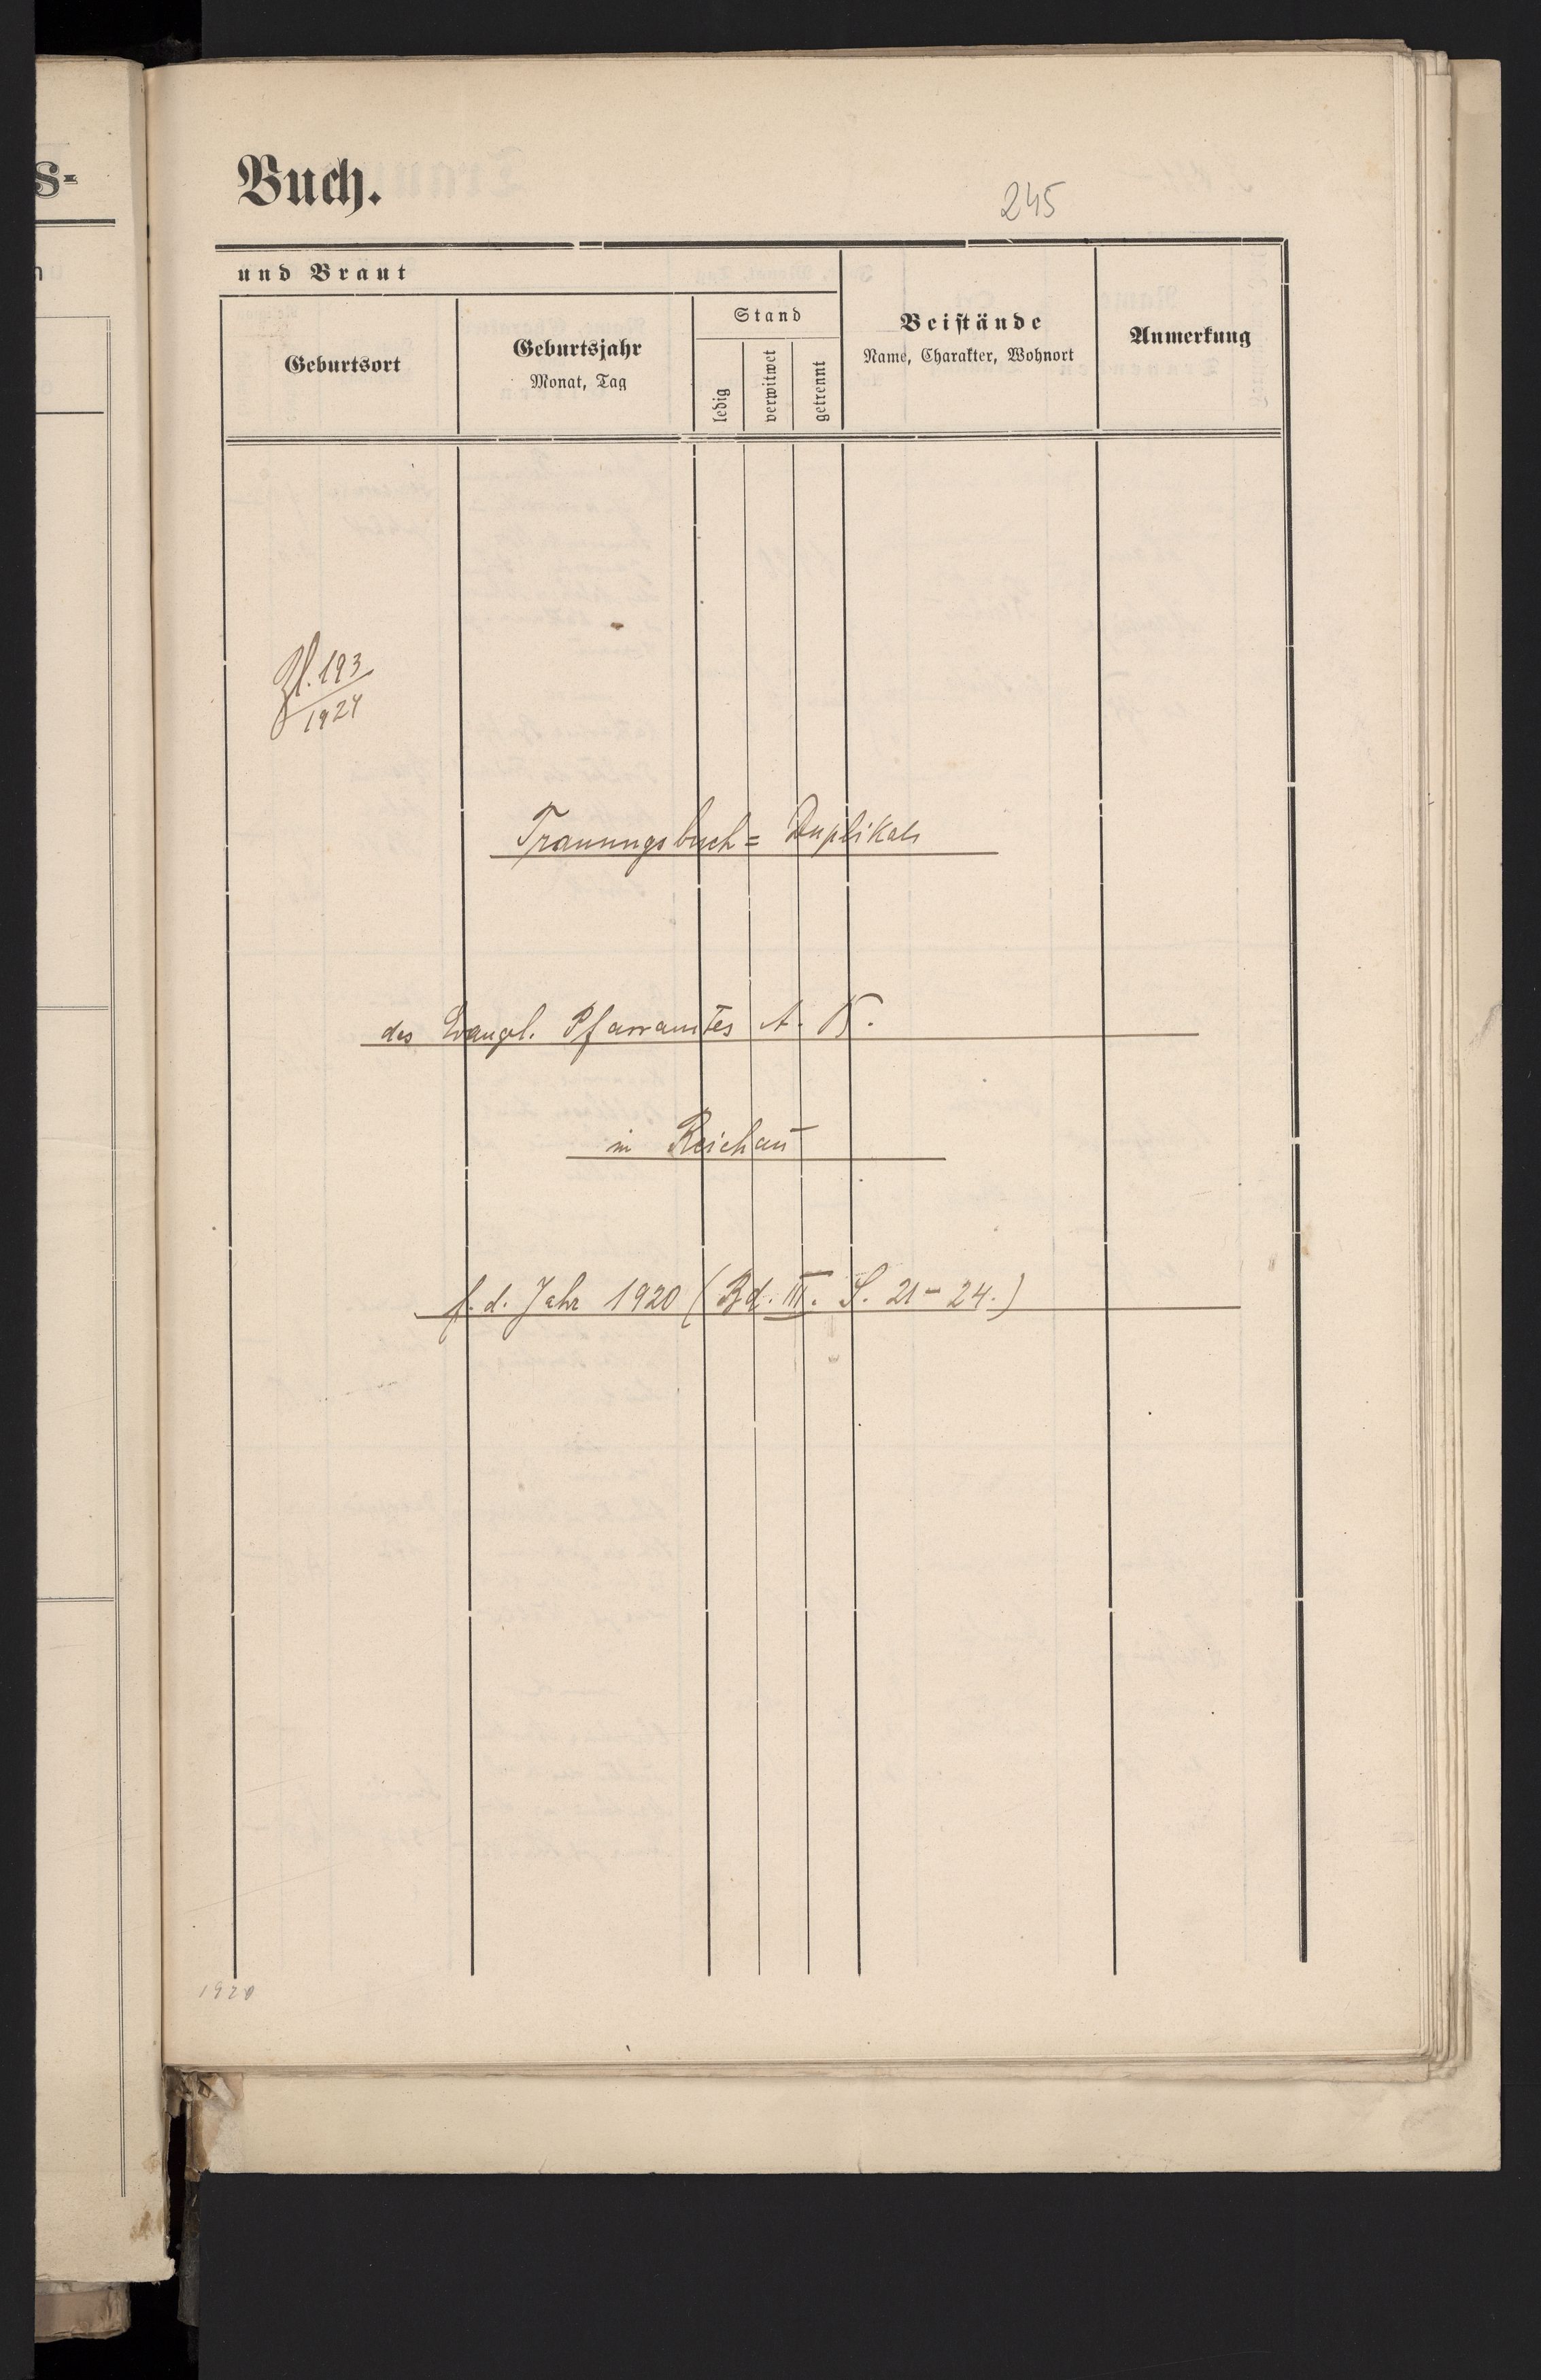 s-
Buch.
245
und Braut
Geburtsort
Geburtsjahr
Monat, Tag
Stand
ledig
verwitwet
getrennt
Beistände
Name, Charakter, Wohnort
Anmerkung
Zl. 193
1924
Trauungsbuch = Duplikat
des Evangl. Pfarramtes A. B.
in Reichau
f. d. Jahr 1920 (Bd. III. S. 21 - 24.)
1920